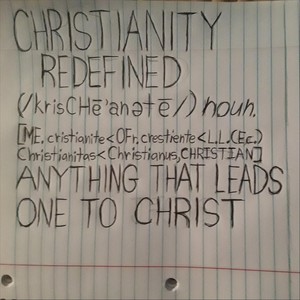 CHRISTIANITY
REDEFINED
(/krisCHē'anətē/) noun.
[ME. cristianite < OFr, crestiente < L.L. (Ec.)
Christianitas < Christianus, CHRISTIAN]
ANYTHING THAT LEADS
ONE TO CHRIST